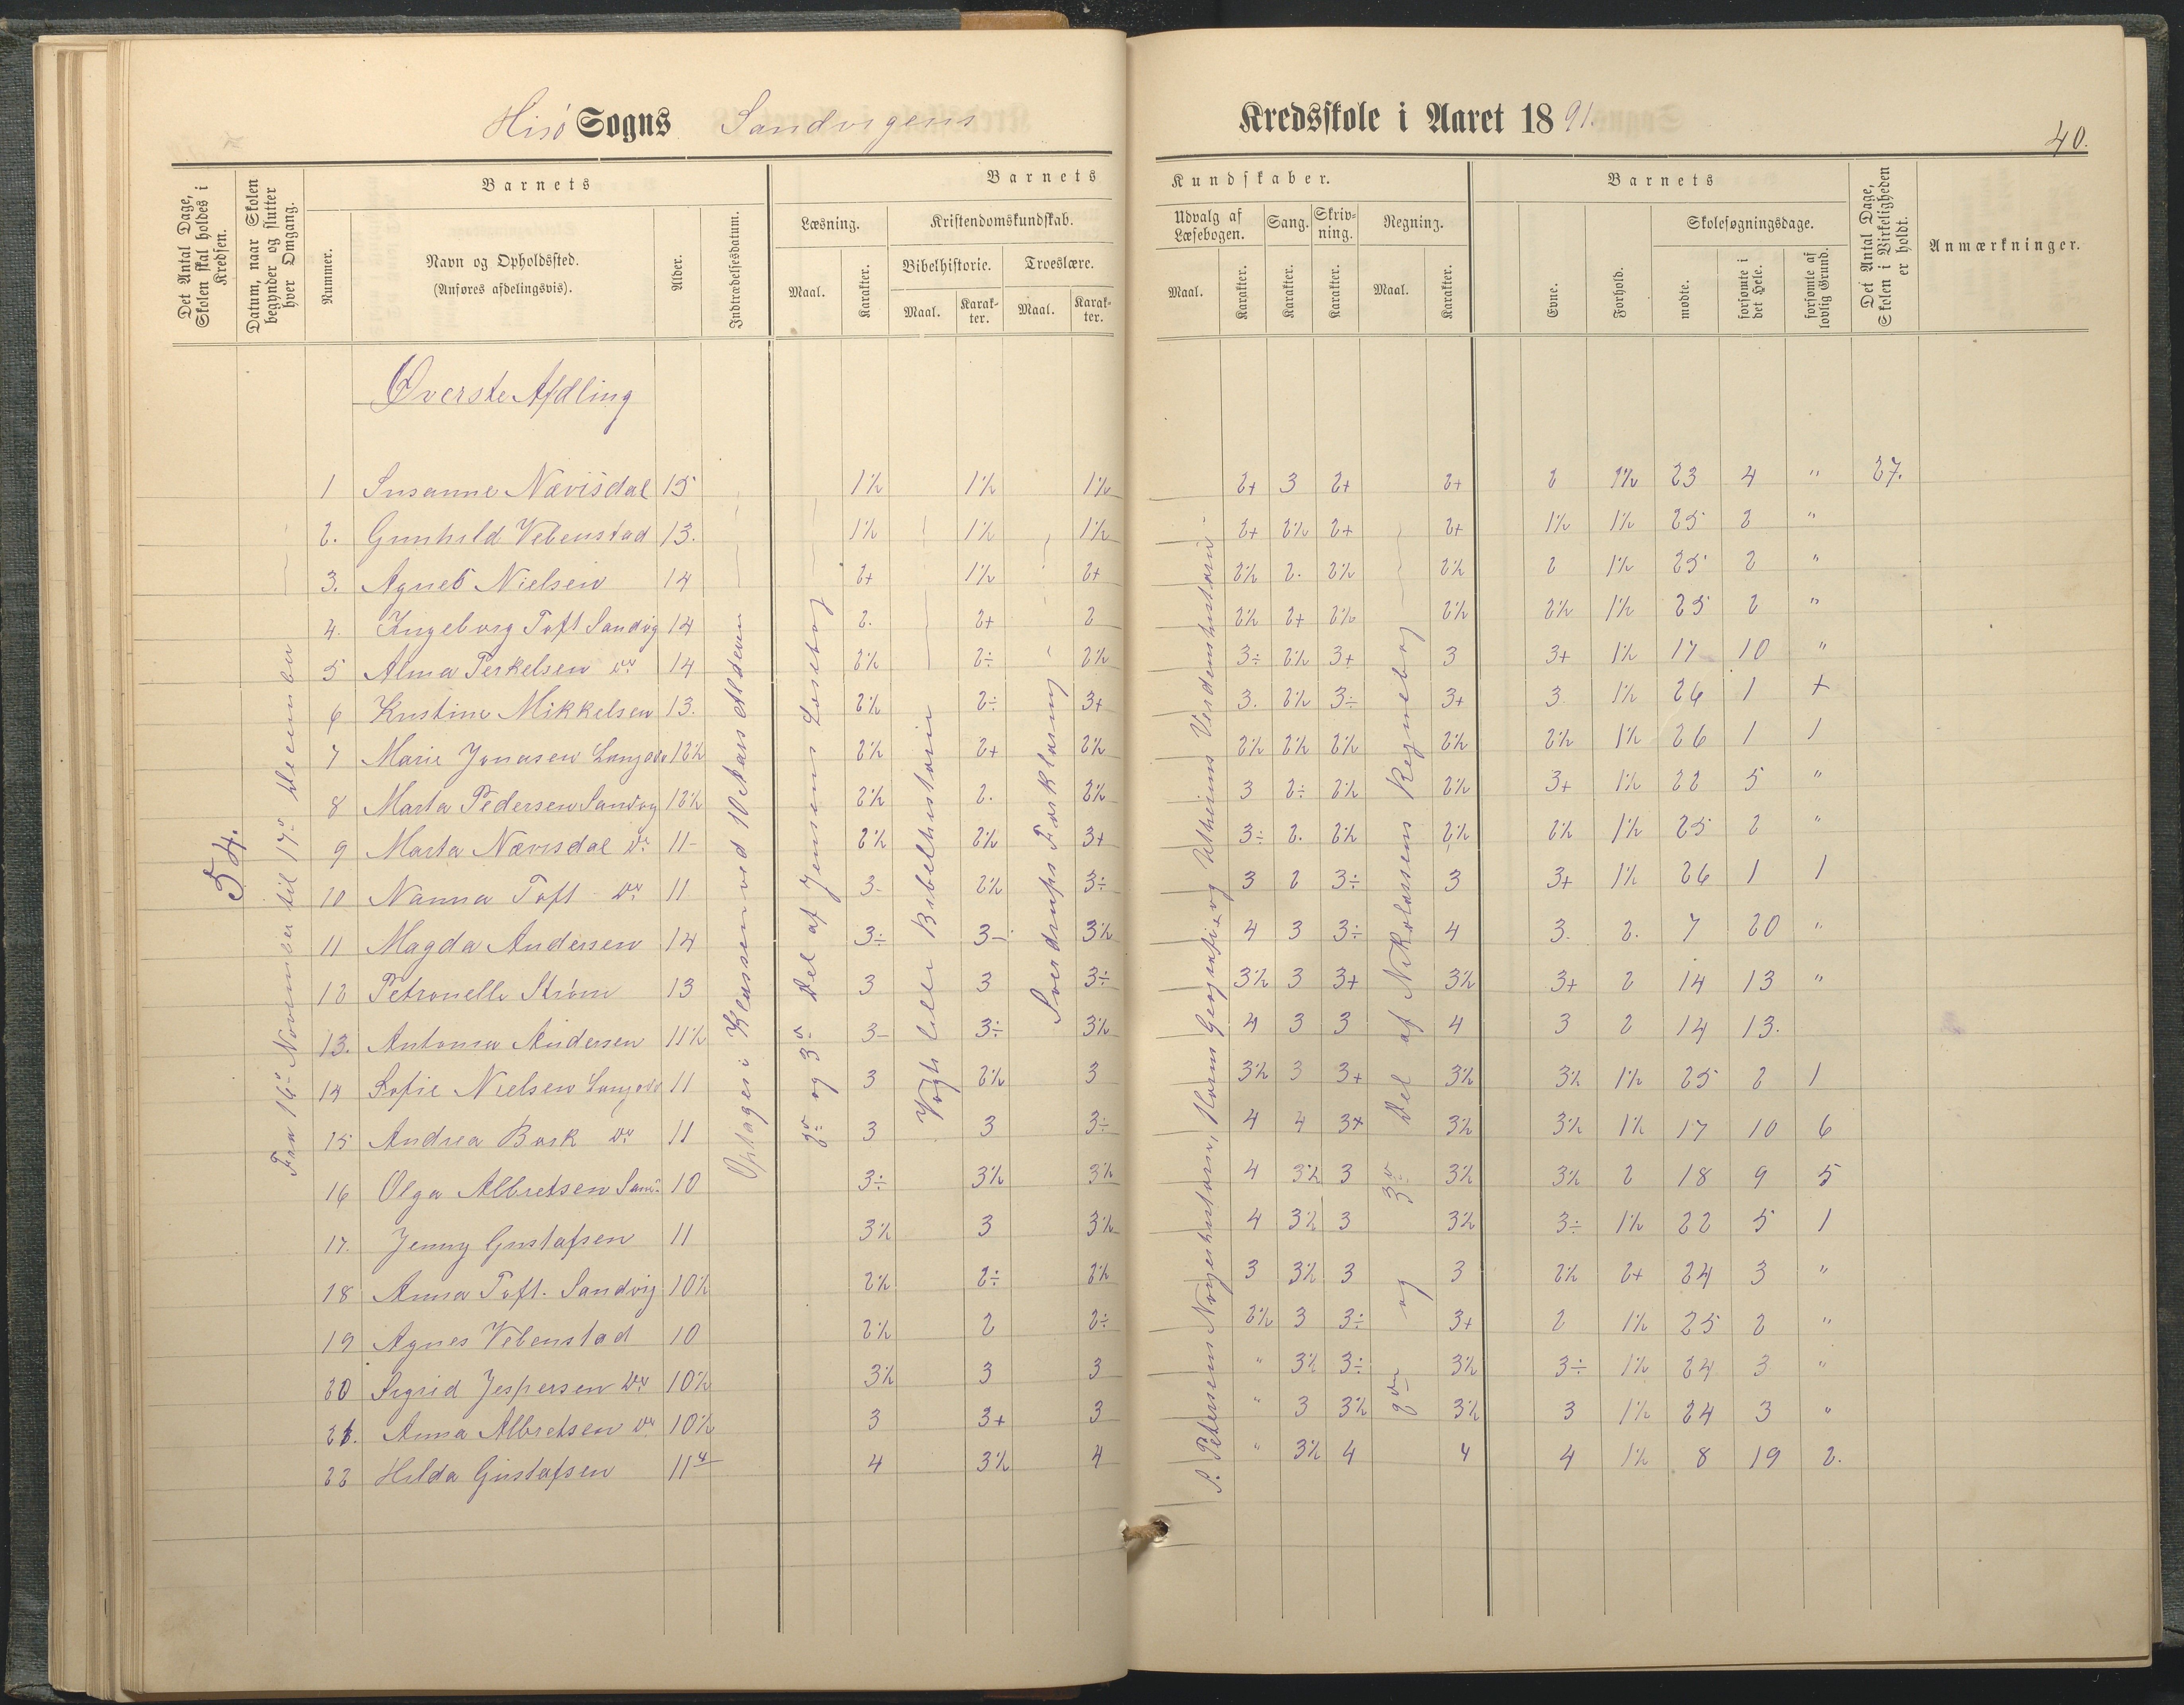 Hisö Sogns Sandvigens Kredsskole i Aaret 1891.
40.
Det Antal Dage, Skolen skal holdes i Kredsen.
Datum, naar Skolen begynder og slutter hver Omgang.
Barnets
Nummer.
Navn og Opholdssted.
(Anføres afdelingsvis).
Alder.
Indtrædelsesdatum.
Barnets Kundskaber.
Læsning.
Maal.
Karakter.
Kristendomskundskab.
Bibelhistorie.
Maal.
Karakter.
Troeslære.
Maal.
Karakter.
Udvalg af Læsebogen.
Maal.
Karakter.
Sang.
Karakter.
Skrivning.
Karakter.
Regning.
Maal.
Karakter.
Barnets
Evne.
Forhold.
Skolesøgningsdage.
mødte.
forsømte i det Hele.
forsømte af lovlig Grund.
Det Antal Dage, Skolen i Virkeligheden er holdt.
Anmærkninger.
Øverste Afdling
54.
Fra 16de November til 17de December
Optages i Klassen ved 10 Aars Alderen
2den og 3die Del af Jensens Læsebog
Vogts lille Bibelhistorie
Sverdrups Forklaring
S. Petersens Norgeshistorie, Horns Geografi og Utheims Verdenshistorie
2den og 3die Del af Nikolaisens Regnebog
1 Susanne Nævisdal 15 1½ 1½ 1½ 2+ 3 2+ 2+ 2 1½ 23 4 " 27.
2. Gunhild Vebenstad 13. 1½ 1½ 1½ 2+ 2½ 2+ 2+ 1½ 1½ 25 2 "
3. Agnes Nielsen 14 2+ 1½ 2+ 2½ 2. 2½ 2½ 2 1½ 25 2 "
4. Ingeborg Toft Sandvig 14 2. 2+ 2 2½ 2+ 2½ 2½ 2½ 1½ 25 2 "
5 Alma Terkelsen do 14 2½ 2÷ 2½ 3÷ 2½ 3+ 3 3+ 1½ 17 10 "
6 Kristine Mikkelsen 13. 2½ 2÷ 3+ 3. 2½ 3÷ 3+ 3 1½ 26 1 +
7 Marie Jonasen Langodo 12½ 2½ 2+ 2½ 2½ 2½ 2½ 2½ 2½ 1½ 26 1 1
8 Marta Pedersen Sandvig 12½ 2½ 2. 2½ 3 2÷ 2½ 2½ 3+ 1½ 22 5 "
9 Marta Nævisdal do 11- 2½ 2½ 3+ 3÷ 2. 2½ 2½ 2½ 1½ 25 2 "
10 Nanna Toft do 11 3- 2½ 3÷ 3 2 3÷ 3 3+ 1½ 26 1 1
11 Magda Andersen 14 3÷ 3- 3½ 4 3 3÷ 4 3. 2. 7 20 "
12 Petronelle Strøm 13 3 3 3÷ 3½ 3 3+ 3½ 3+ 2 14 13 "
13. Antonia Andersen 11½ 3- 3÷ 3½ 4 3 3 4 3 2 14 13.
14 Sofie Nielsen Langodo 11 3 2½ 3 3½ 3 3+ 3½ 3½ 1½ 25 2 1
15 Andrea Bark do 11 3 3 3÷ 4 4 3+ 3½ 3½ 1½ 17 10 6
16 Olga Albretsen Sand. 10 3÷ 3½ 3½ 4 3½ 3 3½ 3½ 2 18 9 5
17. Jenny Gustafsen 11 3½ 3 3½ 4 3½ 3 3½ 3÷ 1½ 22 5 1
18 Anna Toft. Sandvig 10½ 2½ 2÷ 2½ 3 3½ 3 3 2½ 2+ 24 3 "
19 Agnes Vebenstad 10 2½ 2 2÷ 2½ 3 3÷ 3+ 2 1½ 25 2 "
20 Sigrid Jespersen do 10½ 3½ 3 3 " 3½ 3÷ 3½ 3÷ 1½ 24 3 "
21. Anna Albretsen do 10½ 3 3+ 3 " 3 3½ 3½ 3 1½ 24 3 "
22 Hilda Gustafsen 11 4 3½ 4 " 3½ 4 4 4 1½ 8 19 2.